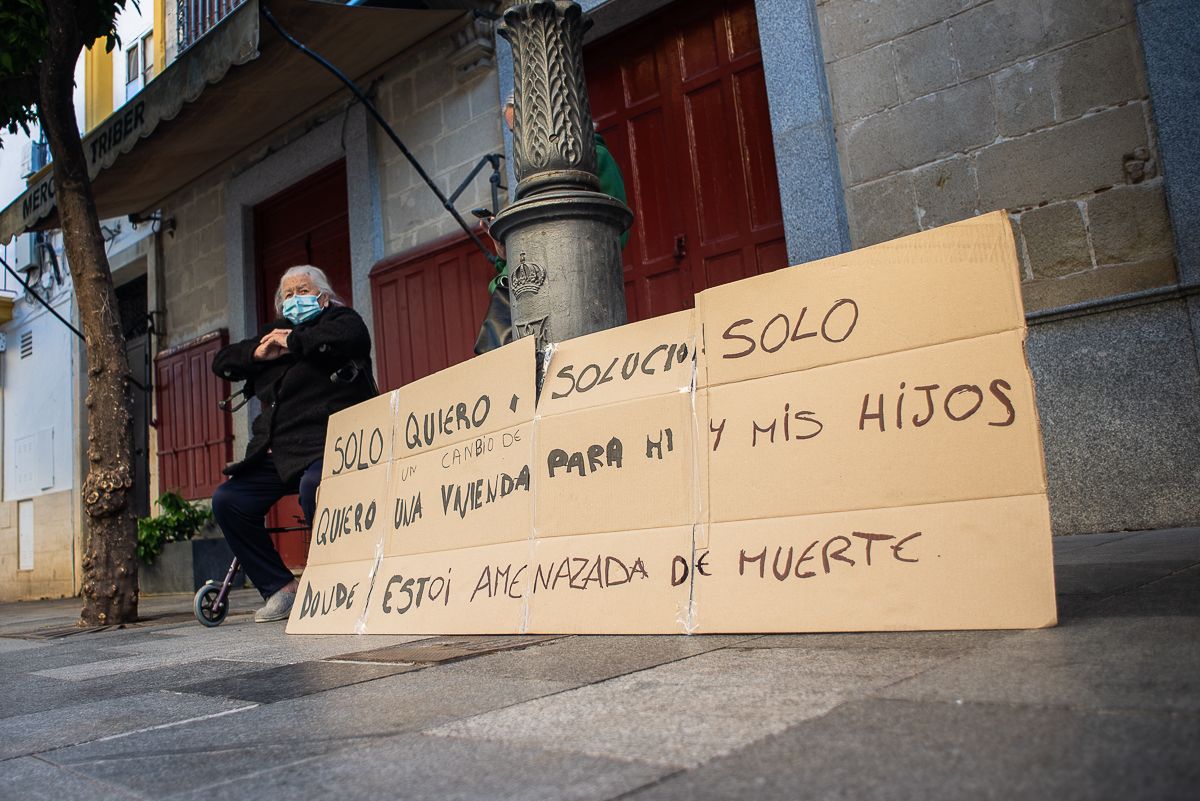 TRIBER
MERC
SOLO QUIERO . SOLUCIO. SOLO
UN CANBIO DE
QUIERO UNA VIVIENDA PARA MI Y MIS HIJOS
DONDE ESTOI AMENAZADA DE MUERTE.